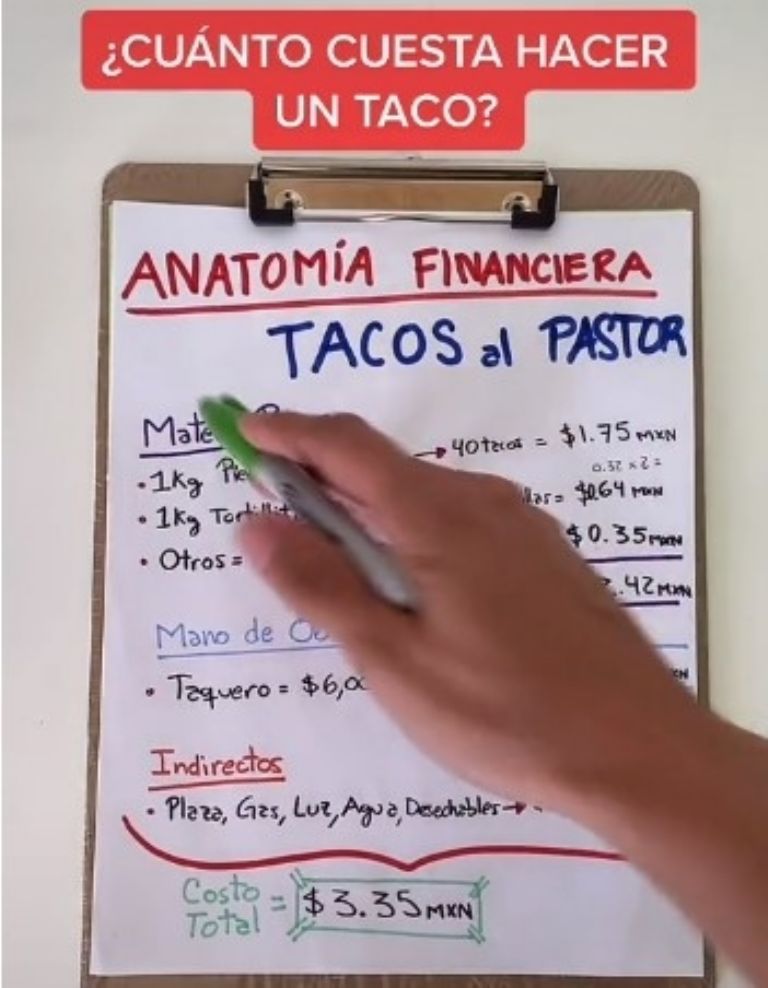 ¿CUÁNTO CUESTA HACER
UN TACO?
ANATOMÍA FINANCIERA
TACOS al PASTOR
• 1Kg → 40 tacos = $1.75 MXN
0.32 x 2 =
• 1Kg = $0.64 MXN
• Otros = $0.35 MXN
.42 MXN
Mano de
• Taquero = $6,00
Indirectos
• Plaza, Gas, Luz, Agua, Desechables →
Costo
Total = $3.35 MXN